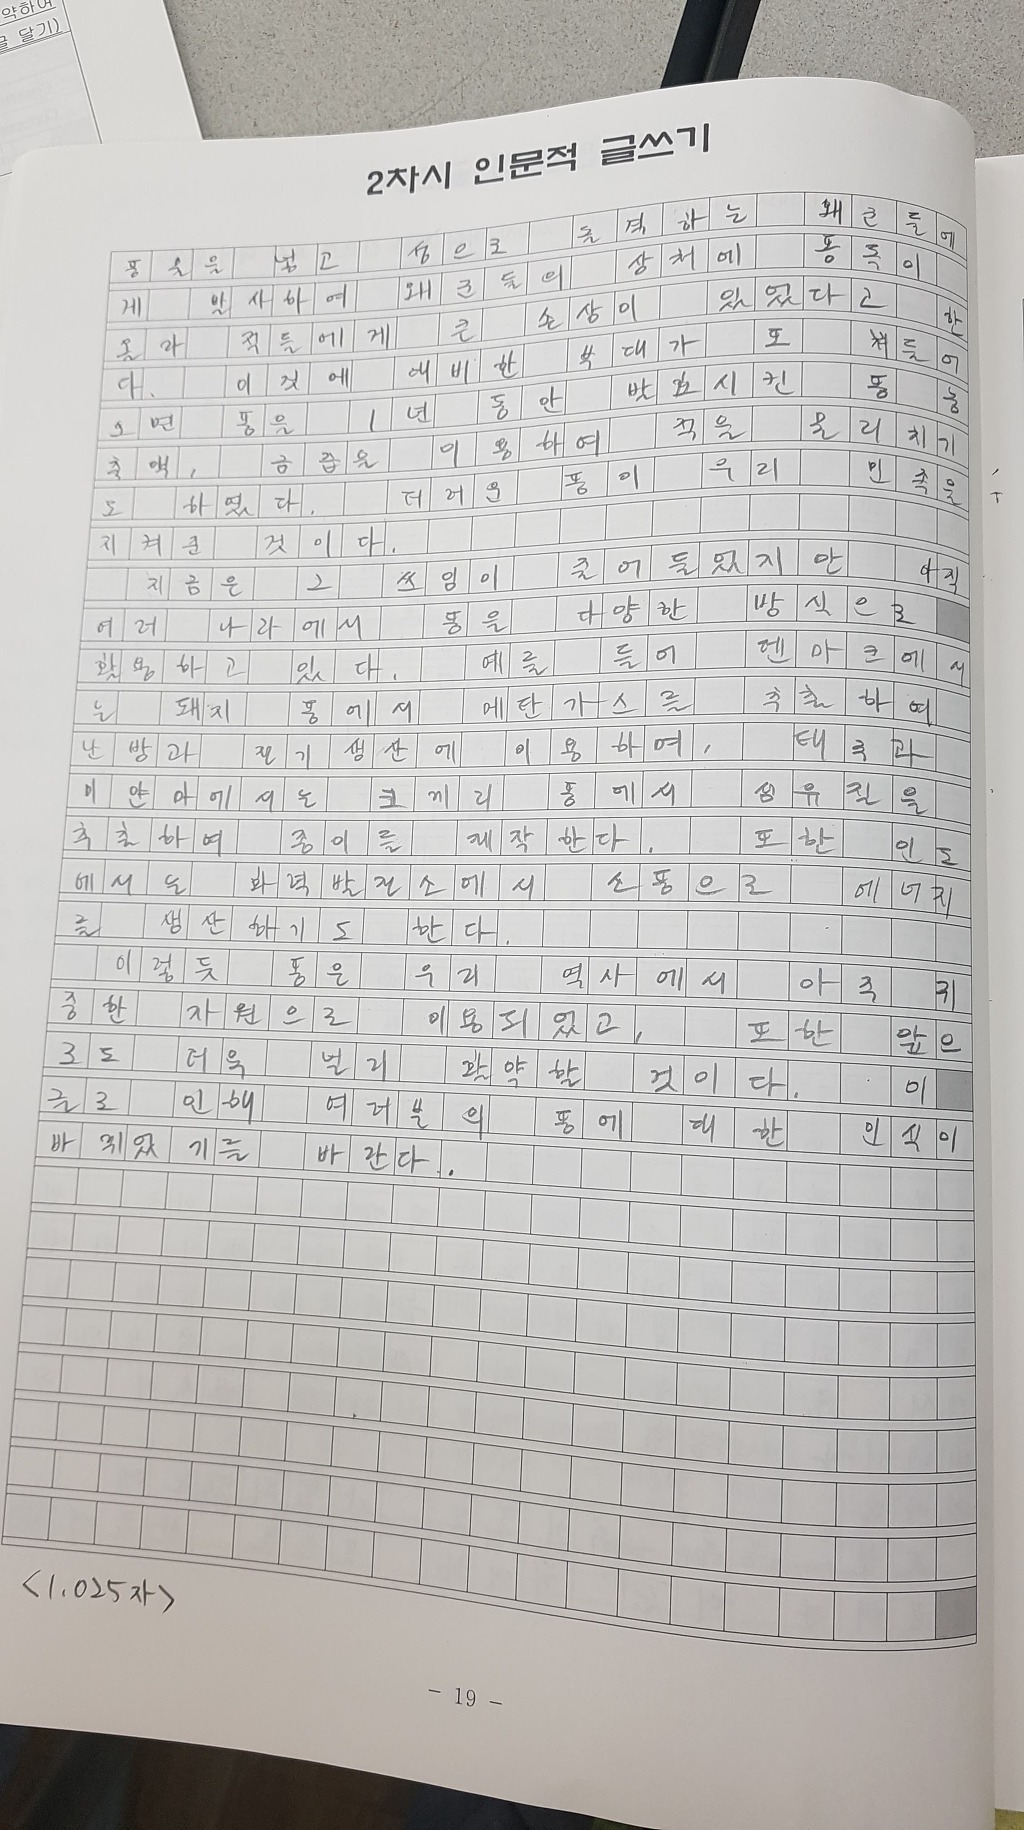 약하여
글 달기)
2차시 인문적 글쓰기
똥물을 넣고 성으로 돌격하는 왜군들에
게 발사하여 왜군들의 상처에 똥독이
올라 적들에게 큰 손상이 있었다고 한
다. 이것에 대비한 부대가 또 쳐들어
오면 똥을 1년 동안 발효시킨 똥 농
축액, 금즙을 이용하여 적을 물리치기
도 하였다. 더러운 똥이 우리 민족을
지켜준 것이다.
지금은 그 쓰임이 줄어들었지만 아직
여러 나라에서 똥을 다양한 방식으로
활용하고 있다. 예를 들어 덴마크에서
는 돼지 똥에서 메탄가스를 추출하여
난방과 전기 생산에 이용하여, 태국과
미얀마에서는 코끼리 똥에서 섬유질을
추출하여 종이를 제작한다. 또한 인도
에서는 화력발전소에서 소똥으로 에너지
를 생산하기도 한다.
이렇듯 똥은 우리 역사에서 아주 귀
중한 자원으로 이용되었고, 또한 앞으
로도 더욱 널리 활약할 것이다. 이
글로 인해 여러분의 똥에 대한 인식이
바뀌었기를 바란다.
<1.025자>
- 19 -